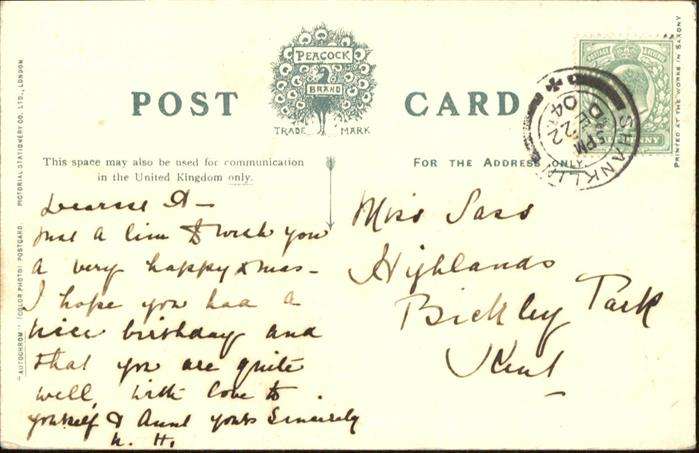 POST CARD
PEACOCK
BRAND
TRADE MARK
This space may also be used for communication
in the United Kingdom only.
FOR THE ADDRESS ONLY.
Dearest A-
Just a line to wish you
a very happy Xmas-
I hope you had a
nice birthday and
that you are quite
well, with love to
yourself & Aunt yours Sincerely
N. H.
Miss Sass
Highlands
Bickley Park
Kent
SHANKLIN
5 PM
DE 22
04
PENNY
"AUTOCHROM" (COLOR PHOTO) POSTCARD. PICTORIAL STATIONERY CO. LTD., LONDON.
PRINTED AT THE WORKS IN SAXONY